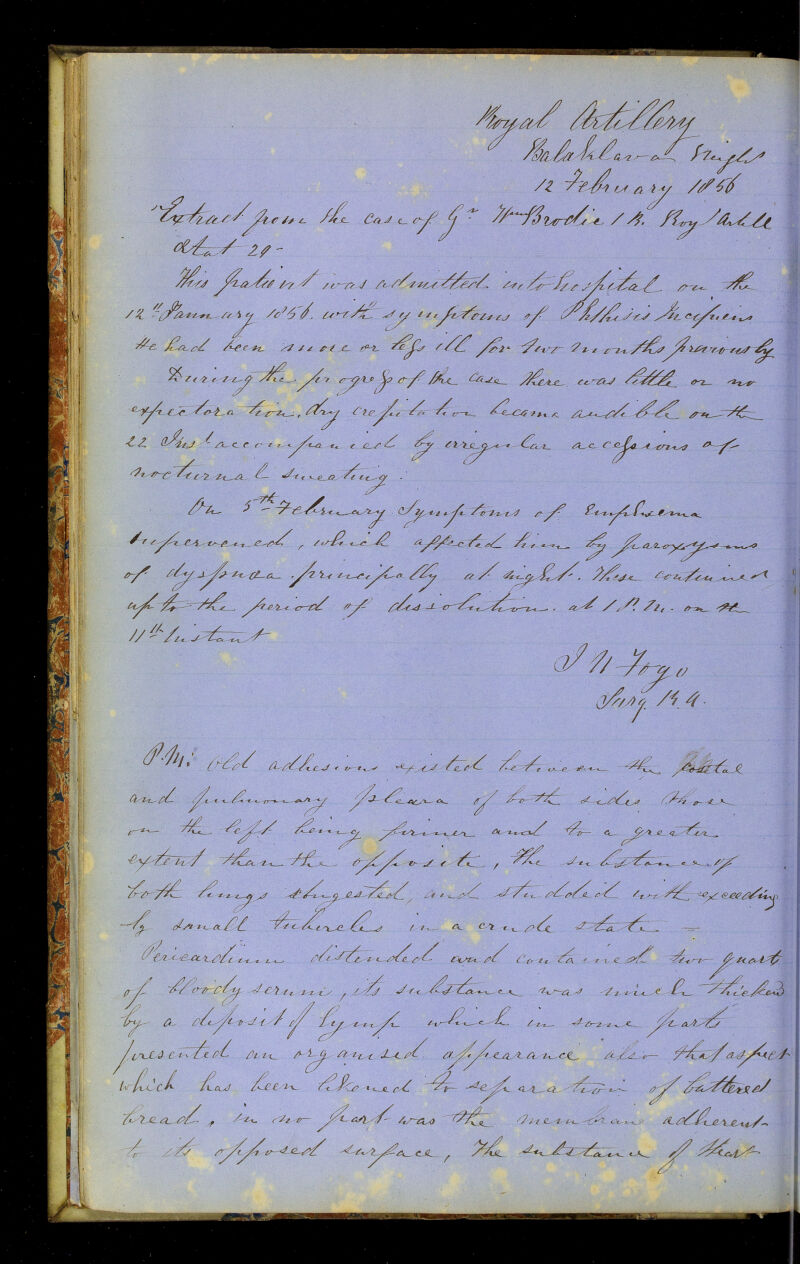 Royal Artillery
Balaklava Height
12 February 1856
Extract from the case of Gr Wm Brodie 1 B. Roy l Artill
Ætat 29 -
This patient was admitted into hospital on the
12th January 1856. with symptoms of Phthisis Incipiens
He had been more or less ill for two months previously
During the progress of the case there was little or no
expectoration, dry crepitation became audible on the
22 Inst accompanied by irregular accessions of
nocturnal sweating.
On 5th February Symptoms of Emphysema
supervened, which affected him by paroxysms
of dyspnœa principally at night. These continued
up to the period of dissolution. at 1 P.M. on the
11th Instant
J N Fogo
Surg. R.A.
P.M. Old adhesions existed between the costal
and pulmonary pleura of both sides those
on the left being firmer and to a greater
extent than the opposite, The substance of
both lungs congested, and studded with exceeding
ly small tubercles in a crude state -
Pericardium distended and contained two quarts
of bloody serum, its substance was much thickend
by a deposit of lymp which in some parts
presented an organised appearance also that aspect
which has been likened to separation of buttered
bread, in no part was the membrane adherent
to its opposed surface, The substance of Heart